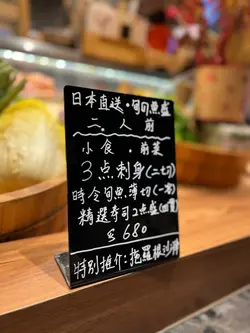 日本直送・旬旬魚盛
二人前
小食・前菜
3点刺身(二七切)
時令旬魚薄切(一本)
精選寿司2点盛(四貫)
$680
特別推介:拖羅根沙律